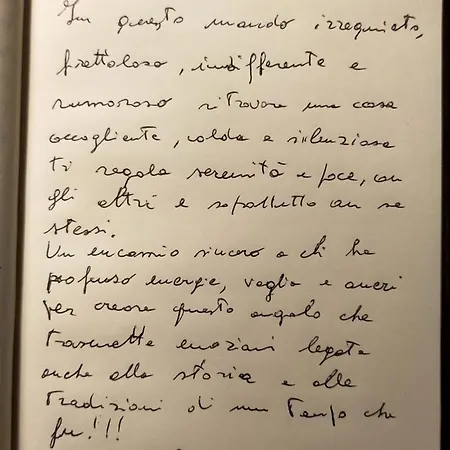 In questo mondo irrequieto,
frettoloso, indifferente e
rumoroso ritrovare una casa
accogliente, calda e silenziosa
ti regala serenità e pace, con
gli altri e soprattutto con se
stessi.
Un encomio sincero a chi ha
profuso energie, voglia e
per creare questo angolo che
trasmette emozioni legate
anche alla storia e alle
tradizioni di un tempo che
fu!!!